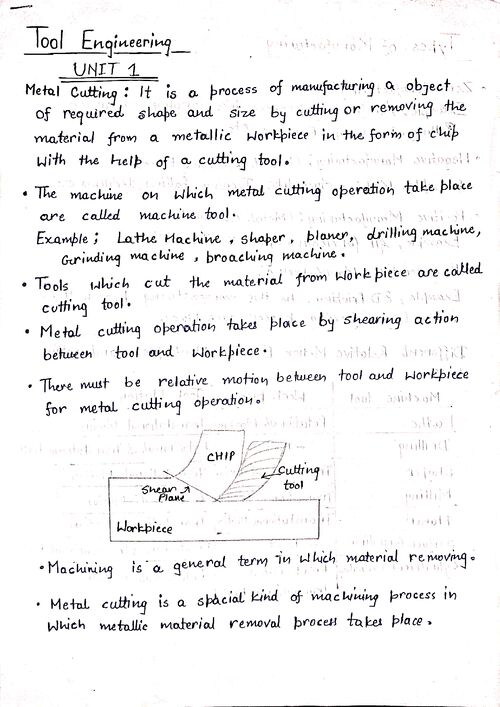 Tool Engineering
UNIT 1
Metal Cutting : It is a process of manufacturing a object
of required shape and size by cutting or removing the
material from a metallic workpiece in the form of chip
with the help of a cutting tool.
• The machine on which metal cutting operation take place
are called machine tool.
Example ; Lathe Machine , shaper , planer, drilling machine,
Grinding machine , broaching machine.
• Tools which cut the material from workpiece are called
cutting tool.
• Metal cutting operation takes place by shearing action
between tool and workpiece.
• There must be relative motion between tool and workpiece
for metal cutting operation.
CHIP
Cutting
tool
Shear
Plane
Workpiece
• Machining is a general term in which material removing.
• Metal cutting is a spacial kind of machining process in
which metallic material removal process takes place.